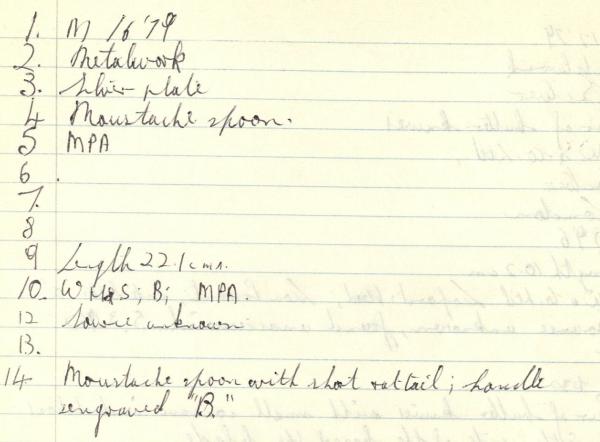 1. M 16 '79
2. Metalwork
3. Silver plate
4 Moustache spoon.
5 MPA
6 .
7.
8
9 Length 22.1 cms.
10. WH&S; B; MPA.
12 Source unknown
13.
14 Moustache spoon with short rattail; handle
engraved "B."